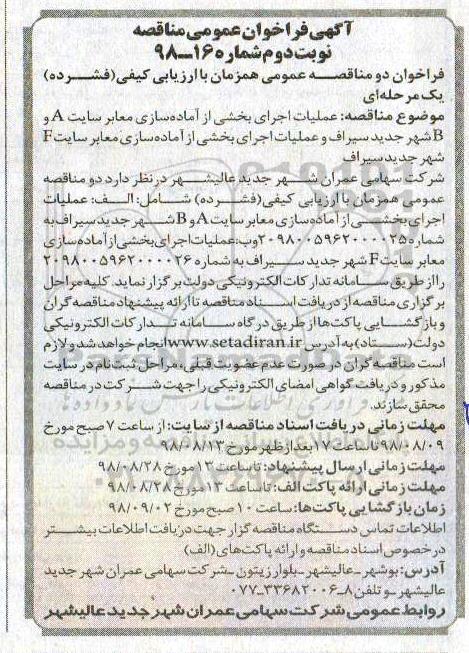 آگهی فراخوان عمومی مناقصه
نوبت دوم شماره ۱۶-۹۸
فراخوان دو مناقصه عمومی همزمان با ارزیابی کیفی (فشرده)
یک مرحله‌ای
موضوع مناقصه: عملیات اجرای بخشی از آماده‌سازی معابر سایت A و
B شهر جدید سیراف و عملیات اجرای بخشی از آماده‌سازی معابر سایت F
شهر جدید سیراف
شرکت سهامی عمران شهر جدید عالیشهر در نظر دارد دو مناقصه
عمومی همزمان با ارزیابی کیفی (فشرده) شامل: الف: عملیات
اجرای بخشی از آماده‌سازی معابر سایت A و B شهر جدید سیراف به
شماره ۲۰۹۸۰۰۵۹۶۲۰۰۰۰۲۵ و ب: عملیات اجرای بخشی از آماده‌سازی
معابر سایت F شهر جدید سیراف به شماره ۲۰۹۸۰۰۵۹۶۲۰۰۰۰۲۶
را از طریق سامانه تدارکات الکترونیکی دولت برگزار نماید. کلیه مراحل
برگزاری مناقصه از دریافت اسناد مناقصه تا ارائه پیشنهاد مناقصه‌گران
و بازگشایی پاکت‌ها از طریق درگاه سامانه تدارکات الکترونیکی
دولت (ستاد) به آدرس www.setadiran.ir انجام خواهد شد و لازم
است مناقصه‌گران در صورت عدم عضویت قبلی، مراحل ثبت نام در سایت
مذکور و دریافت گواهی امضای الکترونیکی را جهت شرکت در مناقصه
محقق سازند.
مهلت زمانی دریافت اسناد مناقصه از سایت: از ساعت ۷ صبح مورخ
۹۸/۰۸/۰۹ تا ساعت ۱۷ بعد از ظهر مورخ ۹۸/۰۸/۱۳
مهلت زمانی ارسال پیشنهاد: تا ساعت ۱۳ مورخ ۹۸/۰۸/۲۸
مهلت زمانی ارائه پاکت الف: تا ساعت ۱۳ مورخ ۹۸/۰۸/۲۸
زمان بازگشایی پاکت‌ها: ساعت ۱۰ صبح مورخ ۹۸/۰۹/۰۲
اطلاعات تماس دستگاه مناقصه گزار جهت دریافت اطلاعات بیشتر
در خصوص اسناد مناقصه و ارائه پاکت‌های (الف)
آدرس: بوشهر - عالیشهر - بلوار زیتون - شرکت سهامی عمران شهر جدید
عالیشهر - و تلفن ۸-۳۳۶۸۲۰۰۶-۰۷۷
روابط عمومی شرکت سهامی عمران شهر جدید عالیشهر